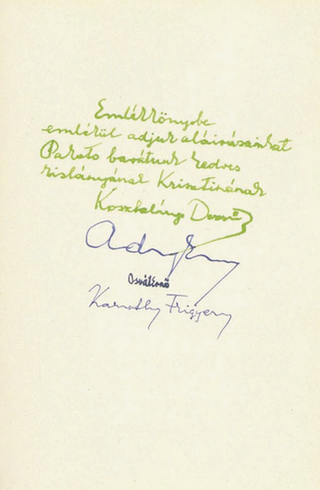 Emlékkönyvbe
emlékül adjuk aláirásainkat
Pakots barátunk kedves
kislányának Krisztinának
Kosztolányi Dezső
Ady Endre
Osvát Ernő
Karinthy Frigyes